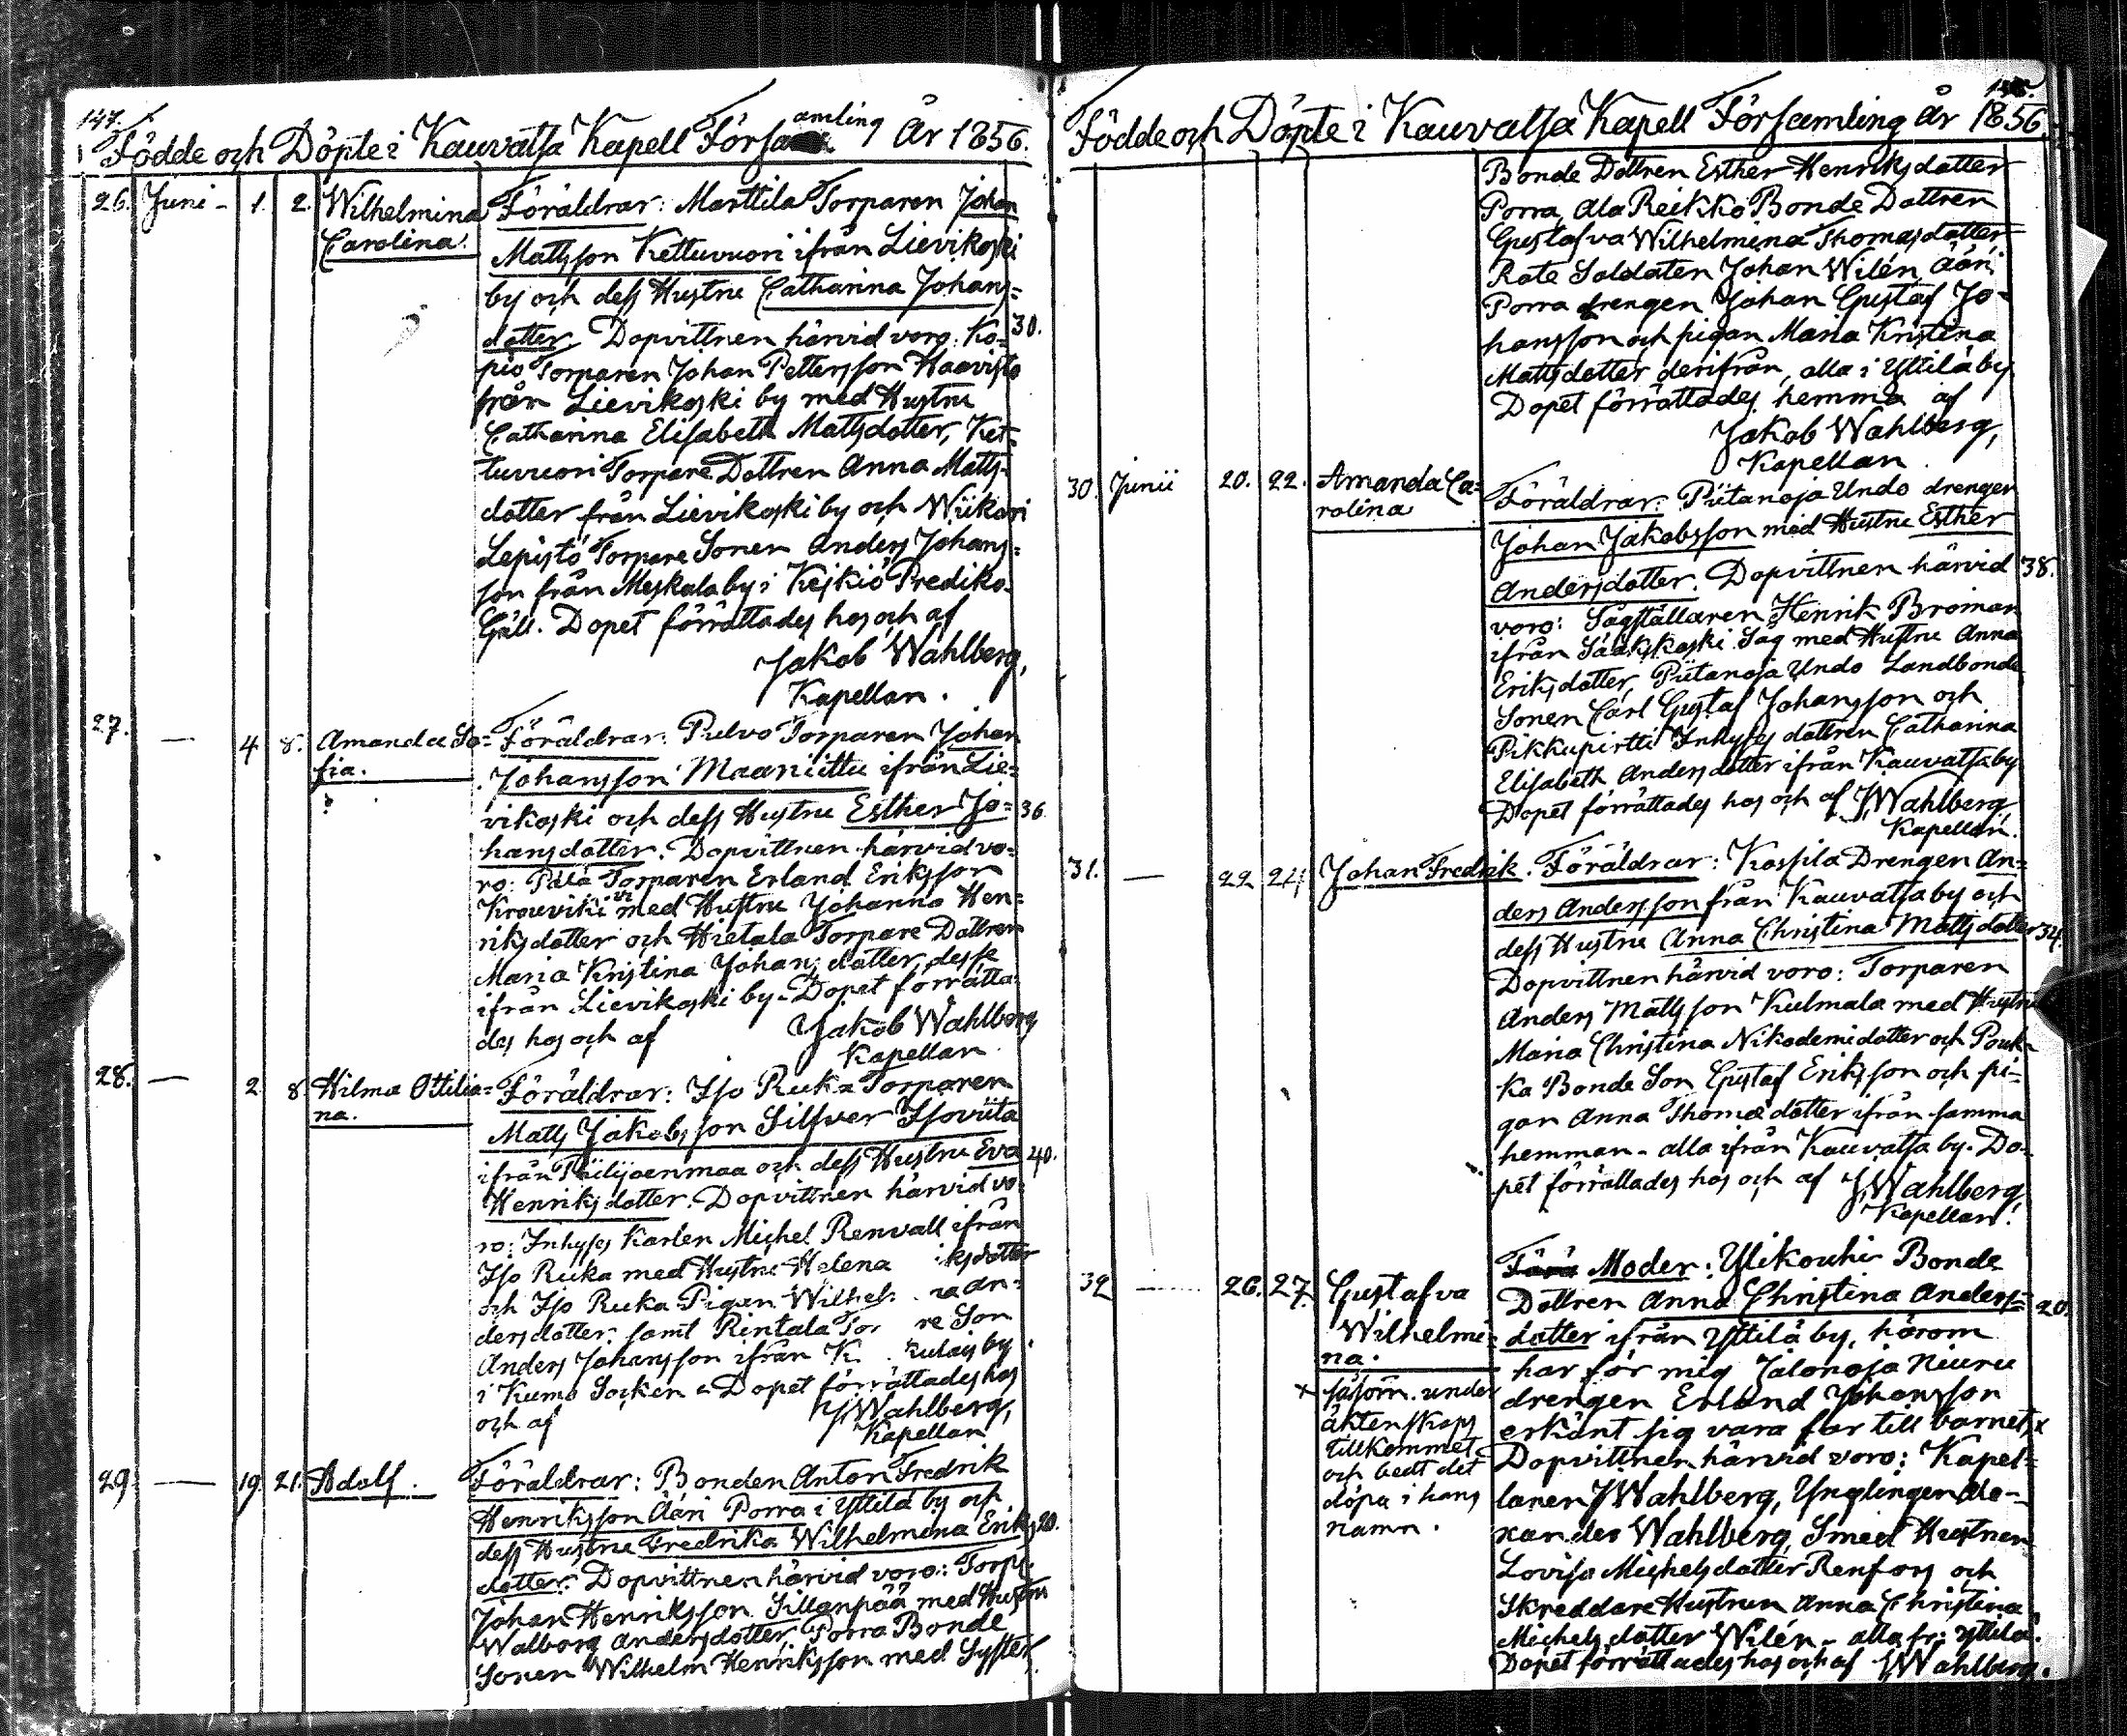 147.
Födde och Döpte i Kauvatsa Kapell Församling År 1856.
26. Juni - 1. 2. Wilhelmina Carolina.
Föräldrar: Marttila Torparen Johan
Mattsson Kettuvuori ifrån Lievikoski
by och dess Hustru Catharina Johans=
dotter Dopvittnen härvid voro: Ko= 30.
pio Torparen Johan Pettersson Haavisto
från Lievikoski by med Hustru
Catharina Elisabeth Mattsdotter, Ket=
tuvuori Torpare Dottren Anna Matts-
dotter från Lievikoski by och Wiikari
Lepistö Torpare Sonen Anders Johans=
son från Meskala by i Keikiö Prediko-
Gäll. Dopet förrättades hos och af
Jakob Wahlberg,
Kapellan.
27. — 4 8. Amanda So=
fia.
Föräldrar: Pulvo Torparen Johan
Johansson Maaniittu ifrån Lie=
vikoski och dess Hustru Esther Jo= 36
hansdotter. Dopvittnen härvid vo=
ro: Torparen Erland Eriksson
med Hustru Johanna Hen=
riksdotter och Hietala Torpare Dottren
Maria Kristina Johansdotter desse
ifrån Lievikoski by. Dopet förrätta-
des hos och af Jakob Wahlberg
Kapellan.
28. — 2 8 Hilma Ottilia=
na.
Föräldrar: Iso Ruka Torparen
Matts Jakobsson Silfver Isoviita
ifrån Piilijoenmaa och dess Hustru Eva 40.
Henriksdotter. Dopvittnen härvid vo-
ro: Inhyses Karlen Michel Renvall ifrån
Iso Ruka med Hustru Helena iksdotter
och Iso Ruka Pigan Wilhel. ra An=
dersdotter, samt Rintala Tor re Son
Anders Johansson ifrån K. by
i Kumo Socken. Dopet förrättades hos
och af JWahlberg,
Kapellan
29. — 19. 21. Adolf.
Föräldrar: Bonden Anton Fredrik
Henriksson Ääri Porra i Yttilä by och
dess Hustru Fredrika Wilhelmina Eriks 20.
dotter. Dopvittnen härvid voro: Torp.
Johan Henriksson Sillanpää med Hustru
Walborg Andersdotter, Porra Bonde
Sonen Wilhelm Henriksson med Syster,
Födde och Döpte i Kauvatsa Kapell Församling År 1856.
Bonde Dottren Esther Henriksdotter
Porra, Ala Reikko Bonde Dottren
Gustafva Wilhelmina Thomasdotter
Rote Soldaten Johan Wilén, Ääri
Porra drengen Johan Gustaf Jo-
hansson och pigan Maria Kristina
Mattsdotter derifrån, alla i Yttilä by
Dopet förrättades hemma af
Jakob Wahlberg,
Kapellan.
30. Junii 20. 22. Amanda Ca=
rolina
Föräldrar: Piitanoja Undo drengen
Johan Jakobsson med Hustru Esther
Andersdotter. Dopvittnen härvid 38.
voro: Sågställaren Henrik Broman
ifrån Sääkskoski Såg med Hustru Anna
Eriksdotter, Piitanoja Undo Landbonde
Sonen Carl Gustaf Johansson och
Pikkupirtti Inhyses dottren Catharina
Elisabeth Andersdotter ifrån Kauvatsa by
Dopet förrättades hos och af JWahlberg
Kapellan.
31. — 22 24 Johan Fredrik.
Föräldrar: Kassila Drengen An=
ders Andersson från Kauvatsa by och
dess Hustru Anna Christina Mattsdotter 34.
Dopvittnen härvid voro: Torparen
Anders Mattsson Kulmala med Hustru
Maria Christina Nikodemidotter och Pouk-
ka Bonde Son Gustaf Eriksson och pi-
gan Anna Thomædotter ifrån samma
hemman - alla ifrån Kauvatsa by. Do-
pet förrättades hos och af JWahlberg
Kapellan.
32 — 26. 27. Gustafva
Wilhelmi=
na.
x såsom under
äktenskaps
tillkommet
och bedt det
döpa i hans
namn.
Förä Moder: Ylikouhi Bonde
Dottren Anna Christina Anders= 20.
dotter ifrån Yttilä by, härom
har för mig Jalonoja Niuru
drengen Erland Johansson
erkänt sig vara far till barnet, x
Dopvittnen härvid voro: Kapel=
lanen JWahlberg, Ynglingen Ale-
xander Wahlberg, Smed Hustrun
Lovisa Michelsdotter Renfors och
Skreddare Hustrun Anna Christina
Michelsdotter Wilén - alla fr: Yttilä.
Dopet förrättades hos och af JWahlberg.